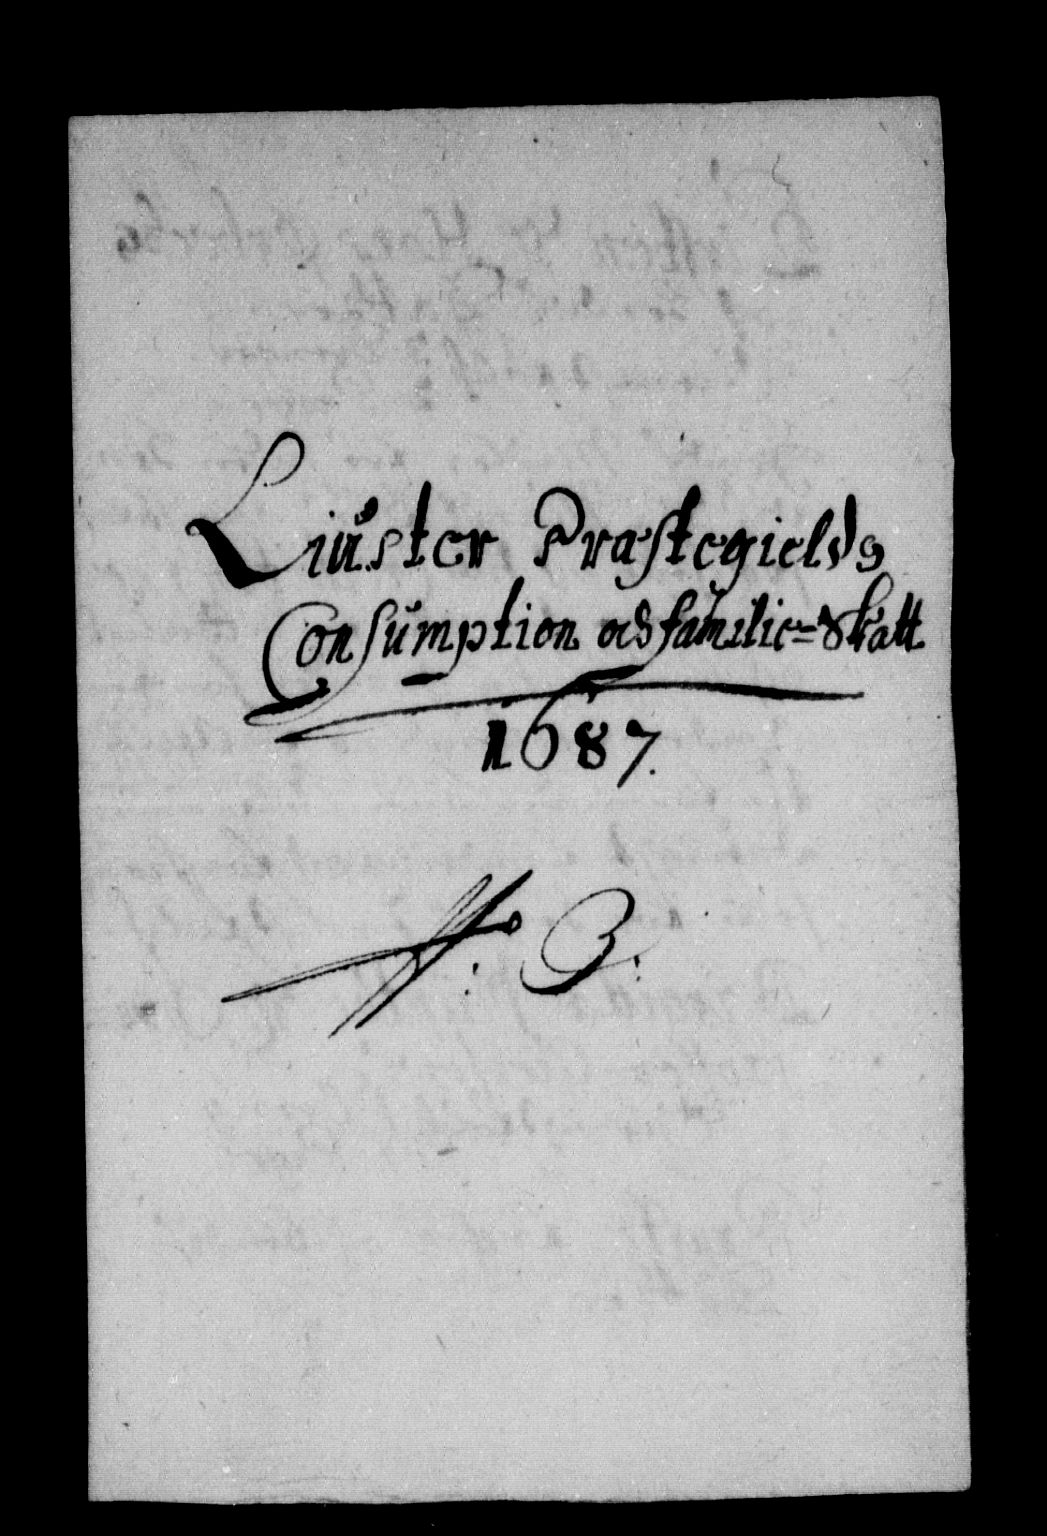 Liuster Præstegields
Consumption oc familie=Skatt
1687.
N: 3: